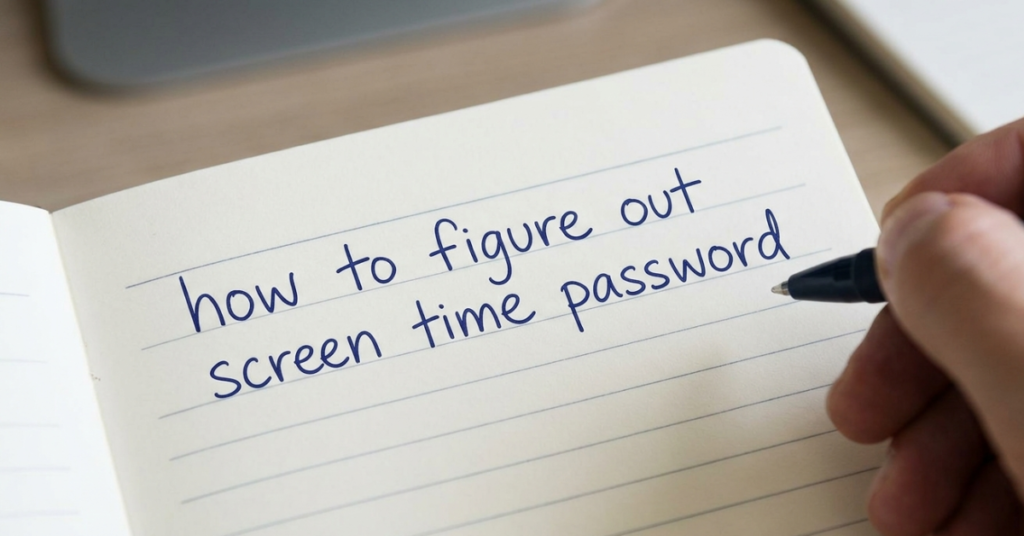 how to figure out
screen time password